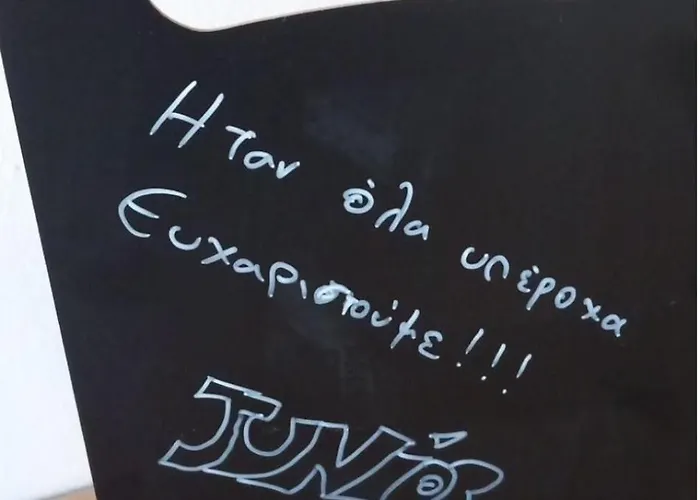 Ηταν όλα υπέροχα
Ευχαριστούμε!!!